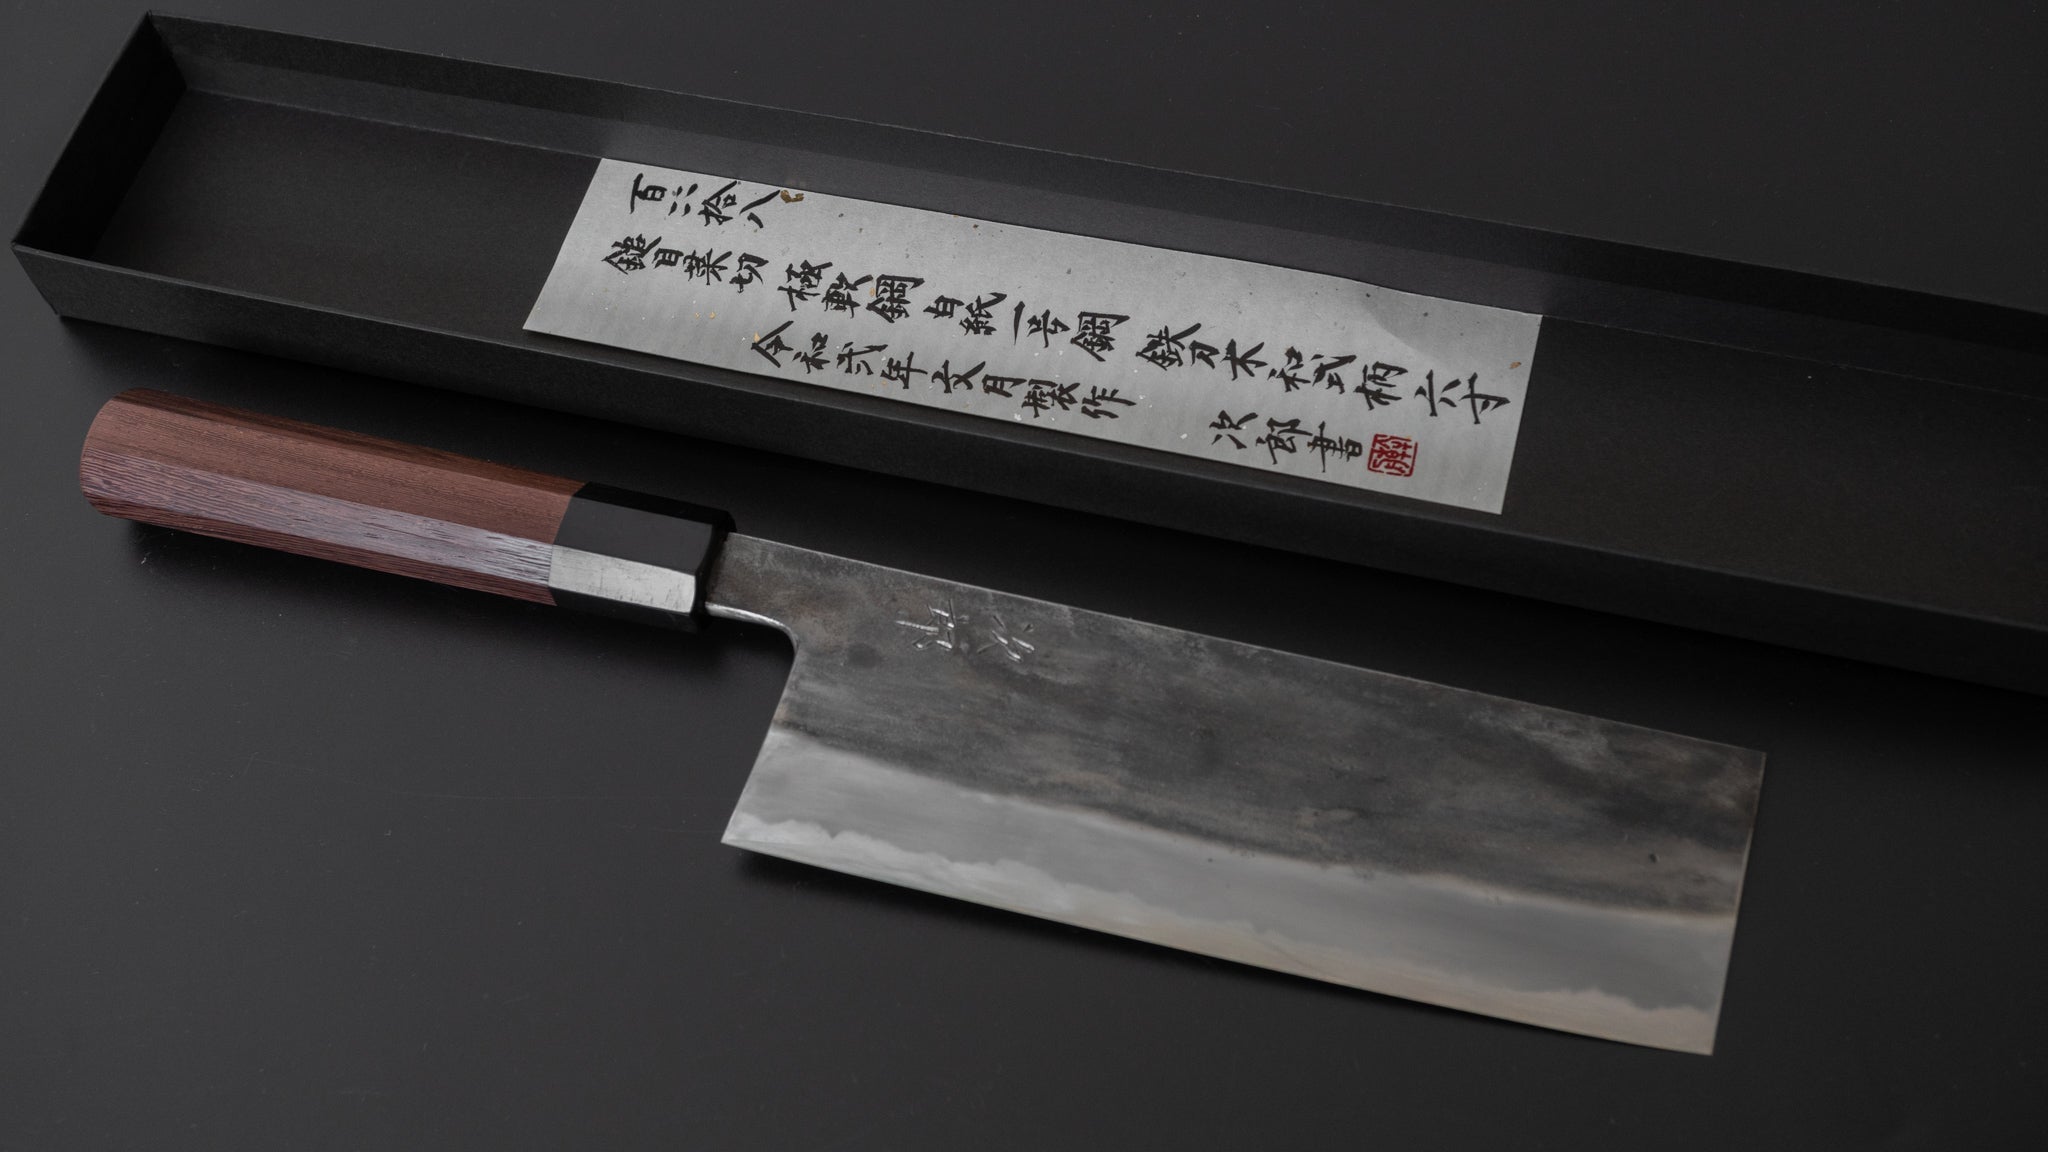 百六拾八
鎚目菜切 極軟鋼 白紙一号鋼 鉄刀木和式柄 六寸
令和弐年文月製作 次郎書
次